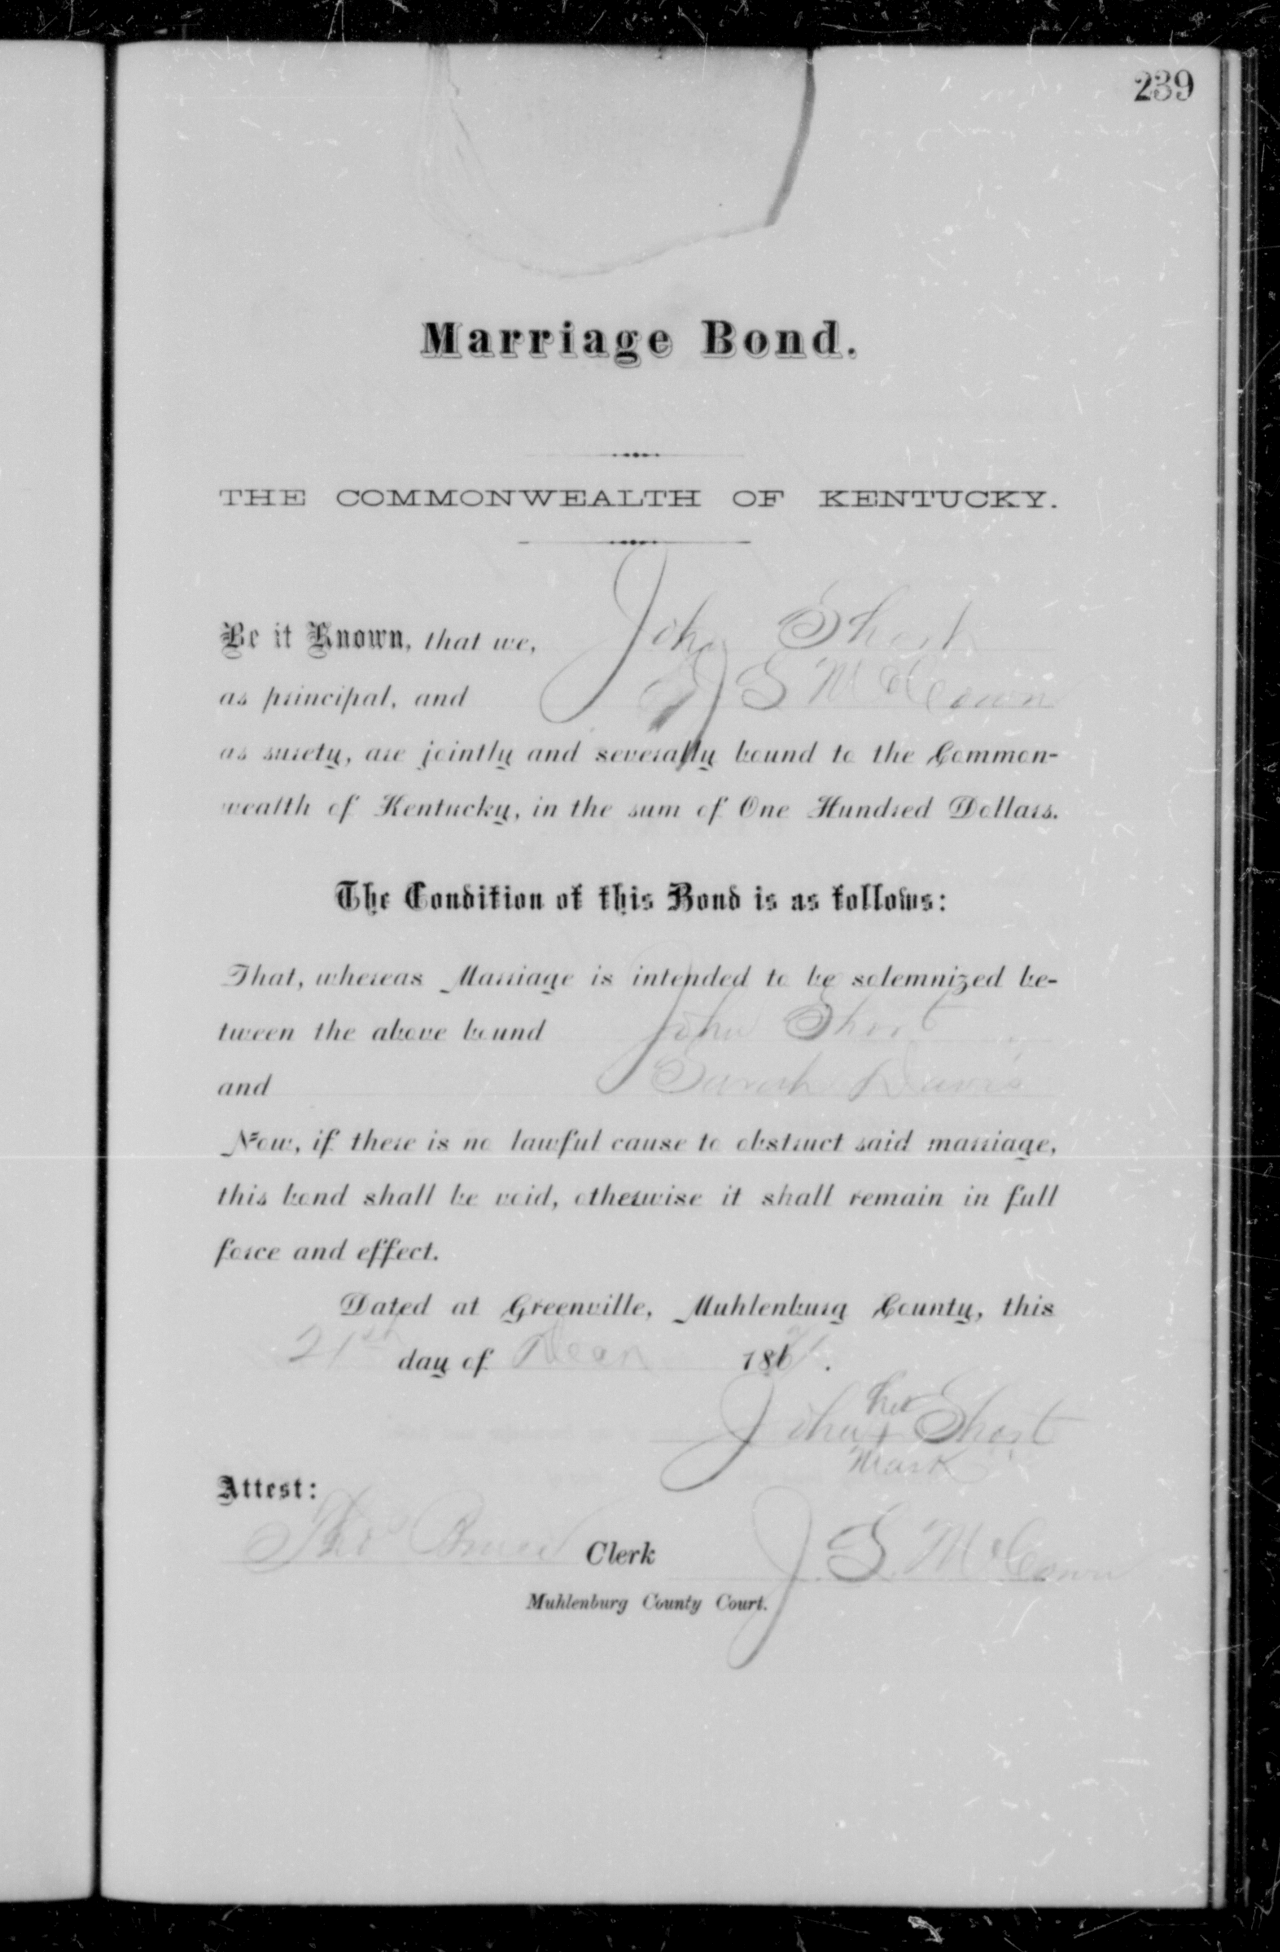 239
Marriage Bond.
THE COMMONWEALTH OF KENTUCKY.
Be it Known, that we, John Short
as principal, and J S McCown
as surety, are jointly and severally bound to the Common-
wealth of Kentucky, in the sum of One Hundred Dollars.
The Condition of this Bond is as follows:
That, whereas Marriage is intended to be solemnized be-
tween the above bound John Short
and Sarah Davis
Now, if there is no lawful cause to obstruct said marriage,
this bond shall be void, otherwise it shall remain in full
force and effect.
Dated at Greenville, Muhlenburg County, this
21st day of 186 .
John his Short
+
mark
Attest:
Thos Clerk J. S. McCown
Muhlenburg County Court.